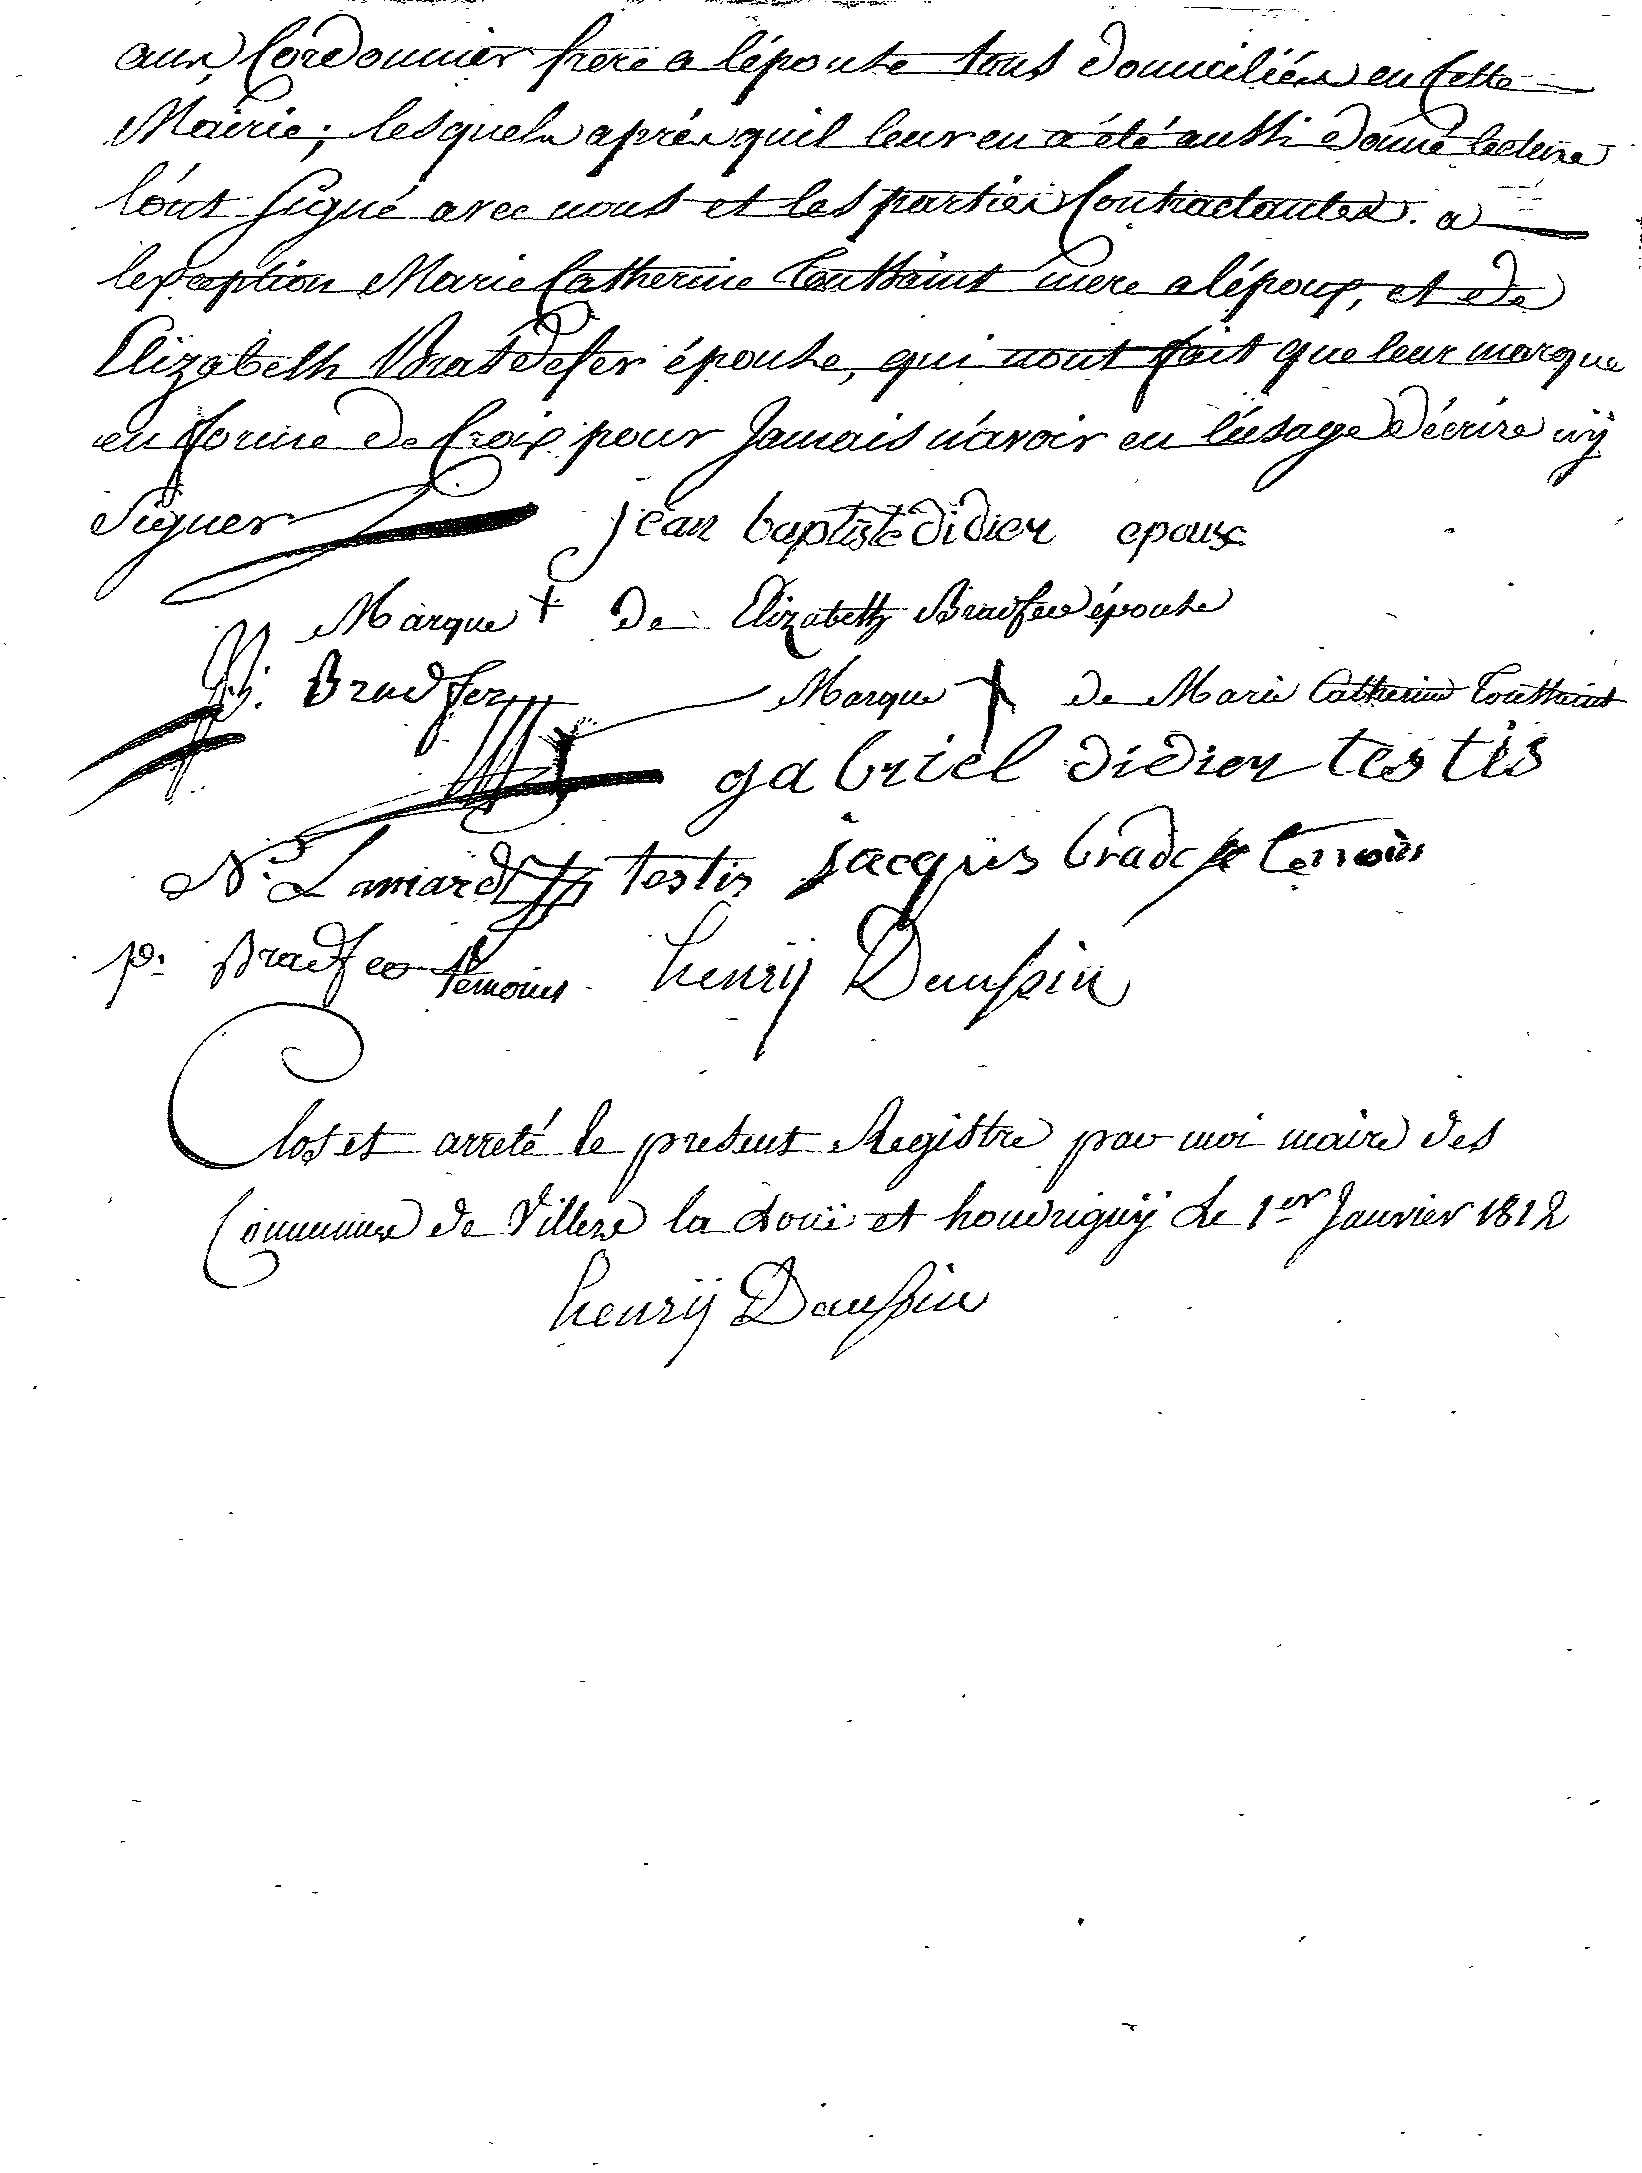 ans, Cordonnier frere a lépouse tous domiciliés en Cette
Mairie; lesquels après quil leur en a été aussi donné lecture
l'ont signé avec nous et les parties Contractantes. a
lexception Marie Catherine Toussaint mere a lépoux, et de
Elizabeth Bratdefer épouse, qui n'ont fait que leur marque
en forme de Croix pour Jamais n'avoir eu l'usage d'écrire ny
Signer jean baptiste didier epoux
Marque + de Elizabeth Bradfer épouse
Bradfer Marque + de Marie Catherine Toussaint
gabriel didier testis
N. Lamiard testis jacques bradefer temoin
p. Bradfer témoins henrij Daussin
Clos et arreté le present Registre par moi maire des
Communes de Villers la Loüe et houdrignÿ Le 1er Janvier 1812
henrij Daussin